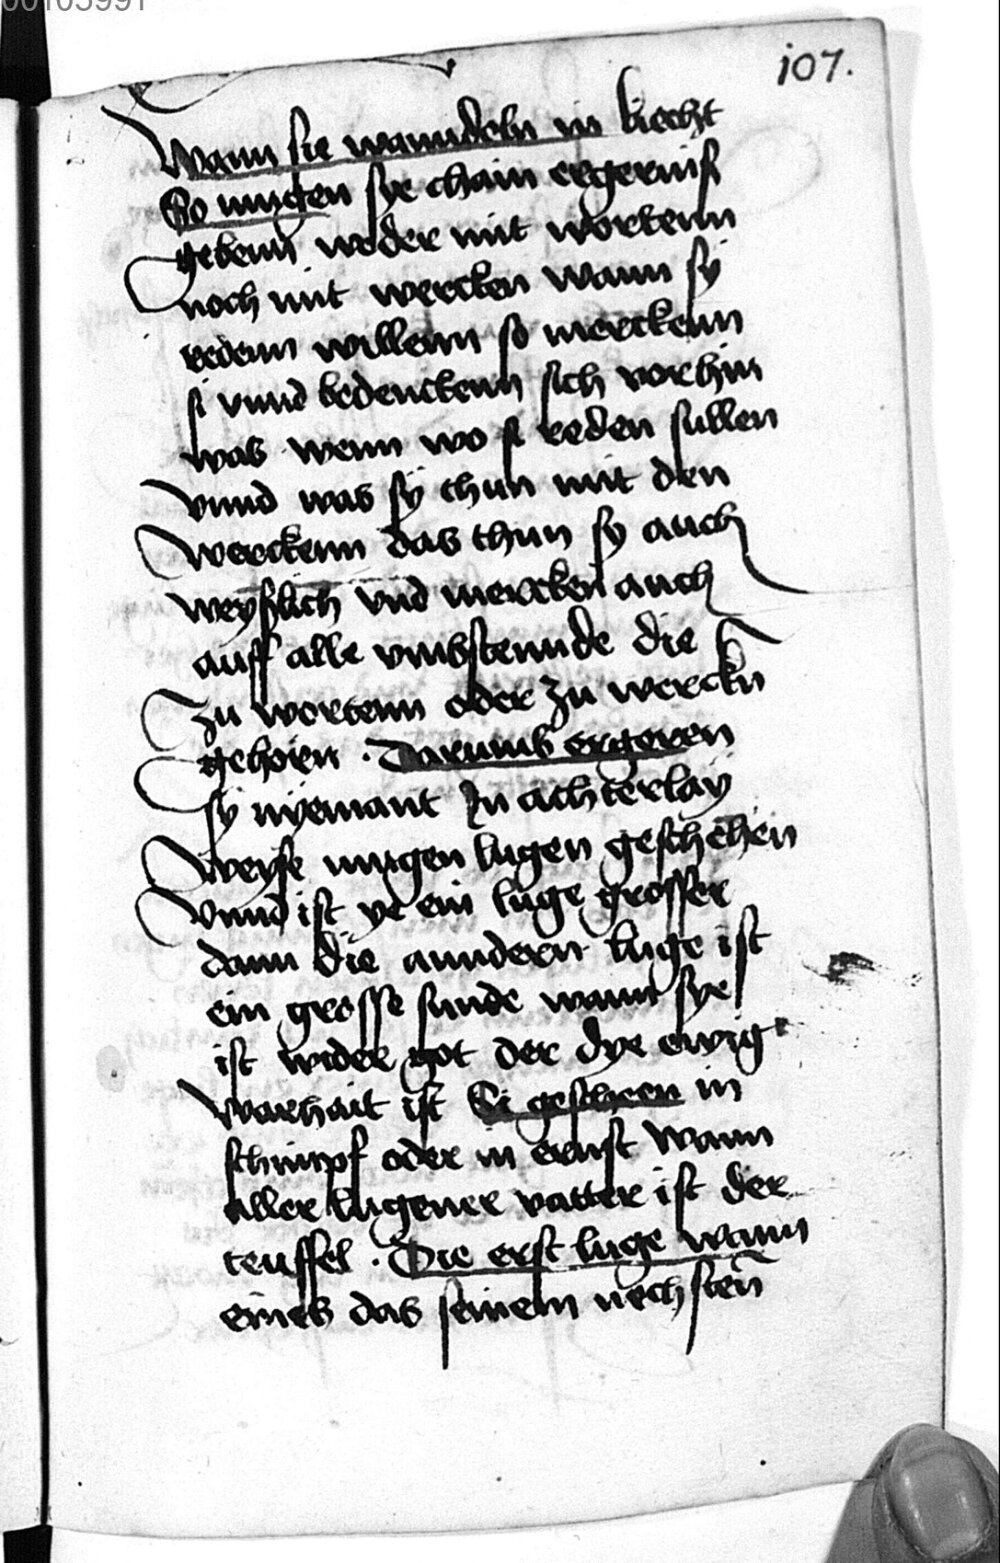 00105991
107.
Wann sie wanndeln in liecht
So mugen sye chain ergernuß
gebenn weder mit wortenn
noch mit wercken wann sy
redenn willenn so merckenn
si vnnd bedenckenn sich vorhin
was wenn wo si reden sullen
vnnd was sy thun mit den
werckenn das thun sy auch
weyßlich vnd mercken auch
auff alle vmbstennde die
zu wortenn oder zu werckn
gehorn . Darumb ergeren
sy nyemant In achterlay
weyse mugen lugen geschehen
vnnd ist ye ein luge grosser
dann die anndern luge ist
ein grosse sunde wann sye
ist wider got der dye ewig
warhait ist Si gescheen in
schimpf oder in ernst wann
aller lugener vatter ist der
teuffel . Die erst luge wann
eines das seinem nechsten̄